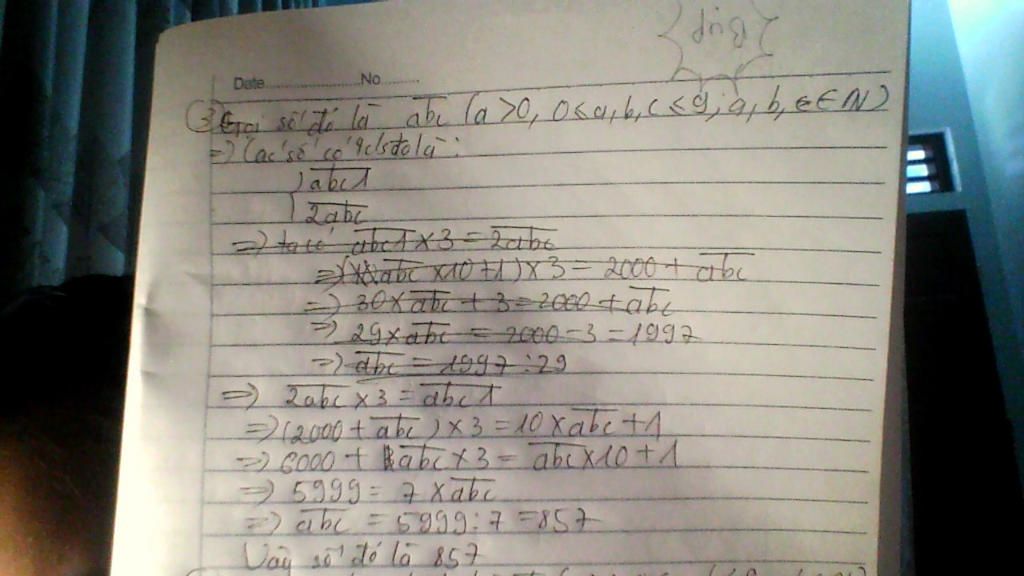 đng
Date............No.......
③ Gọi số đó là abc (a >0, 0≤a,b,c≤9; a, b, c∈N)
=> Các số có 4cls đó là :
abc1
2abc
=> ta có abc1 × 3 = 2abc
=> (abc ×10 +1) × 3 = 2000 + abc
=> 30×abc + 3 = 2000 + abc
=> 29×abc = 2000 - 3 = 1997
=> abc = 1997 : 29
=> 2abc × 3 = abc1
=> (2000 + abc) × 3 = 10 × abc + 1
=> 6000 + abc × 3 = abc × 10 + 1
=> 5999 = 7 × abc
=> abc = 5999 : 7 = 857
Vậy số đó là 857